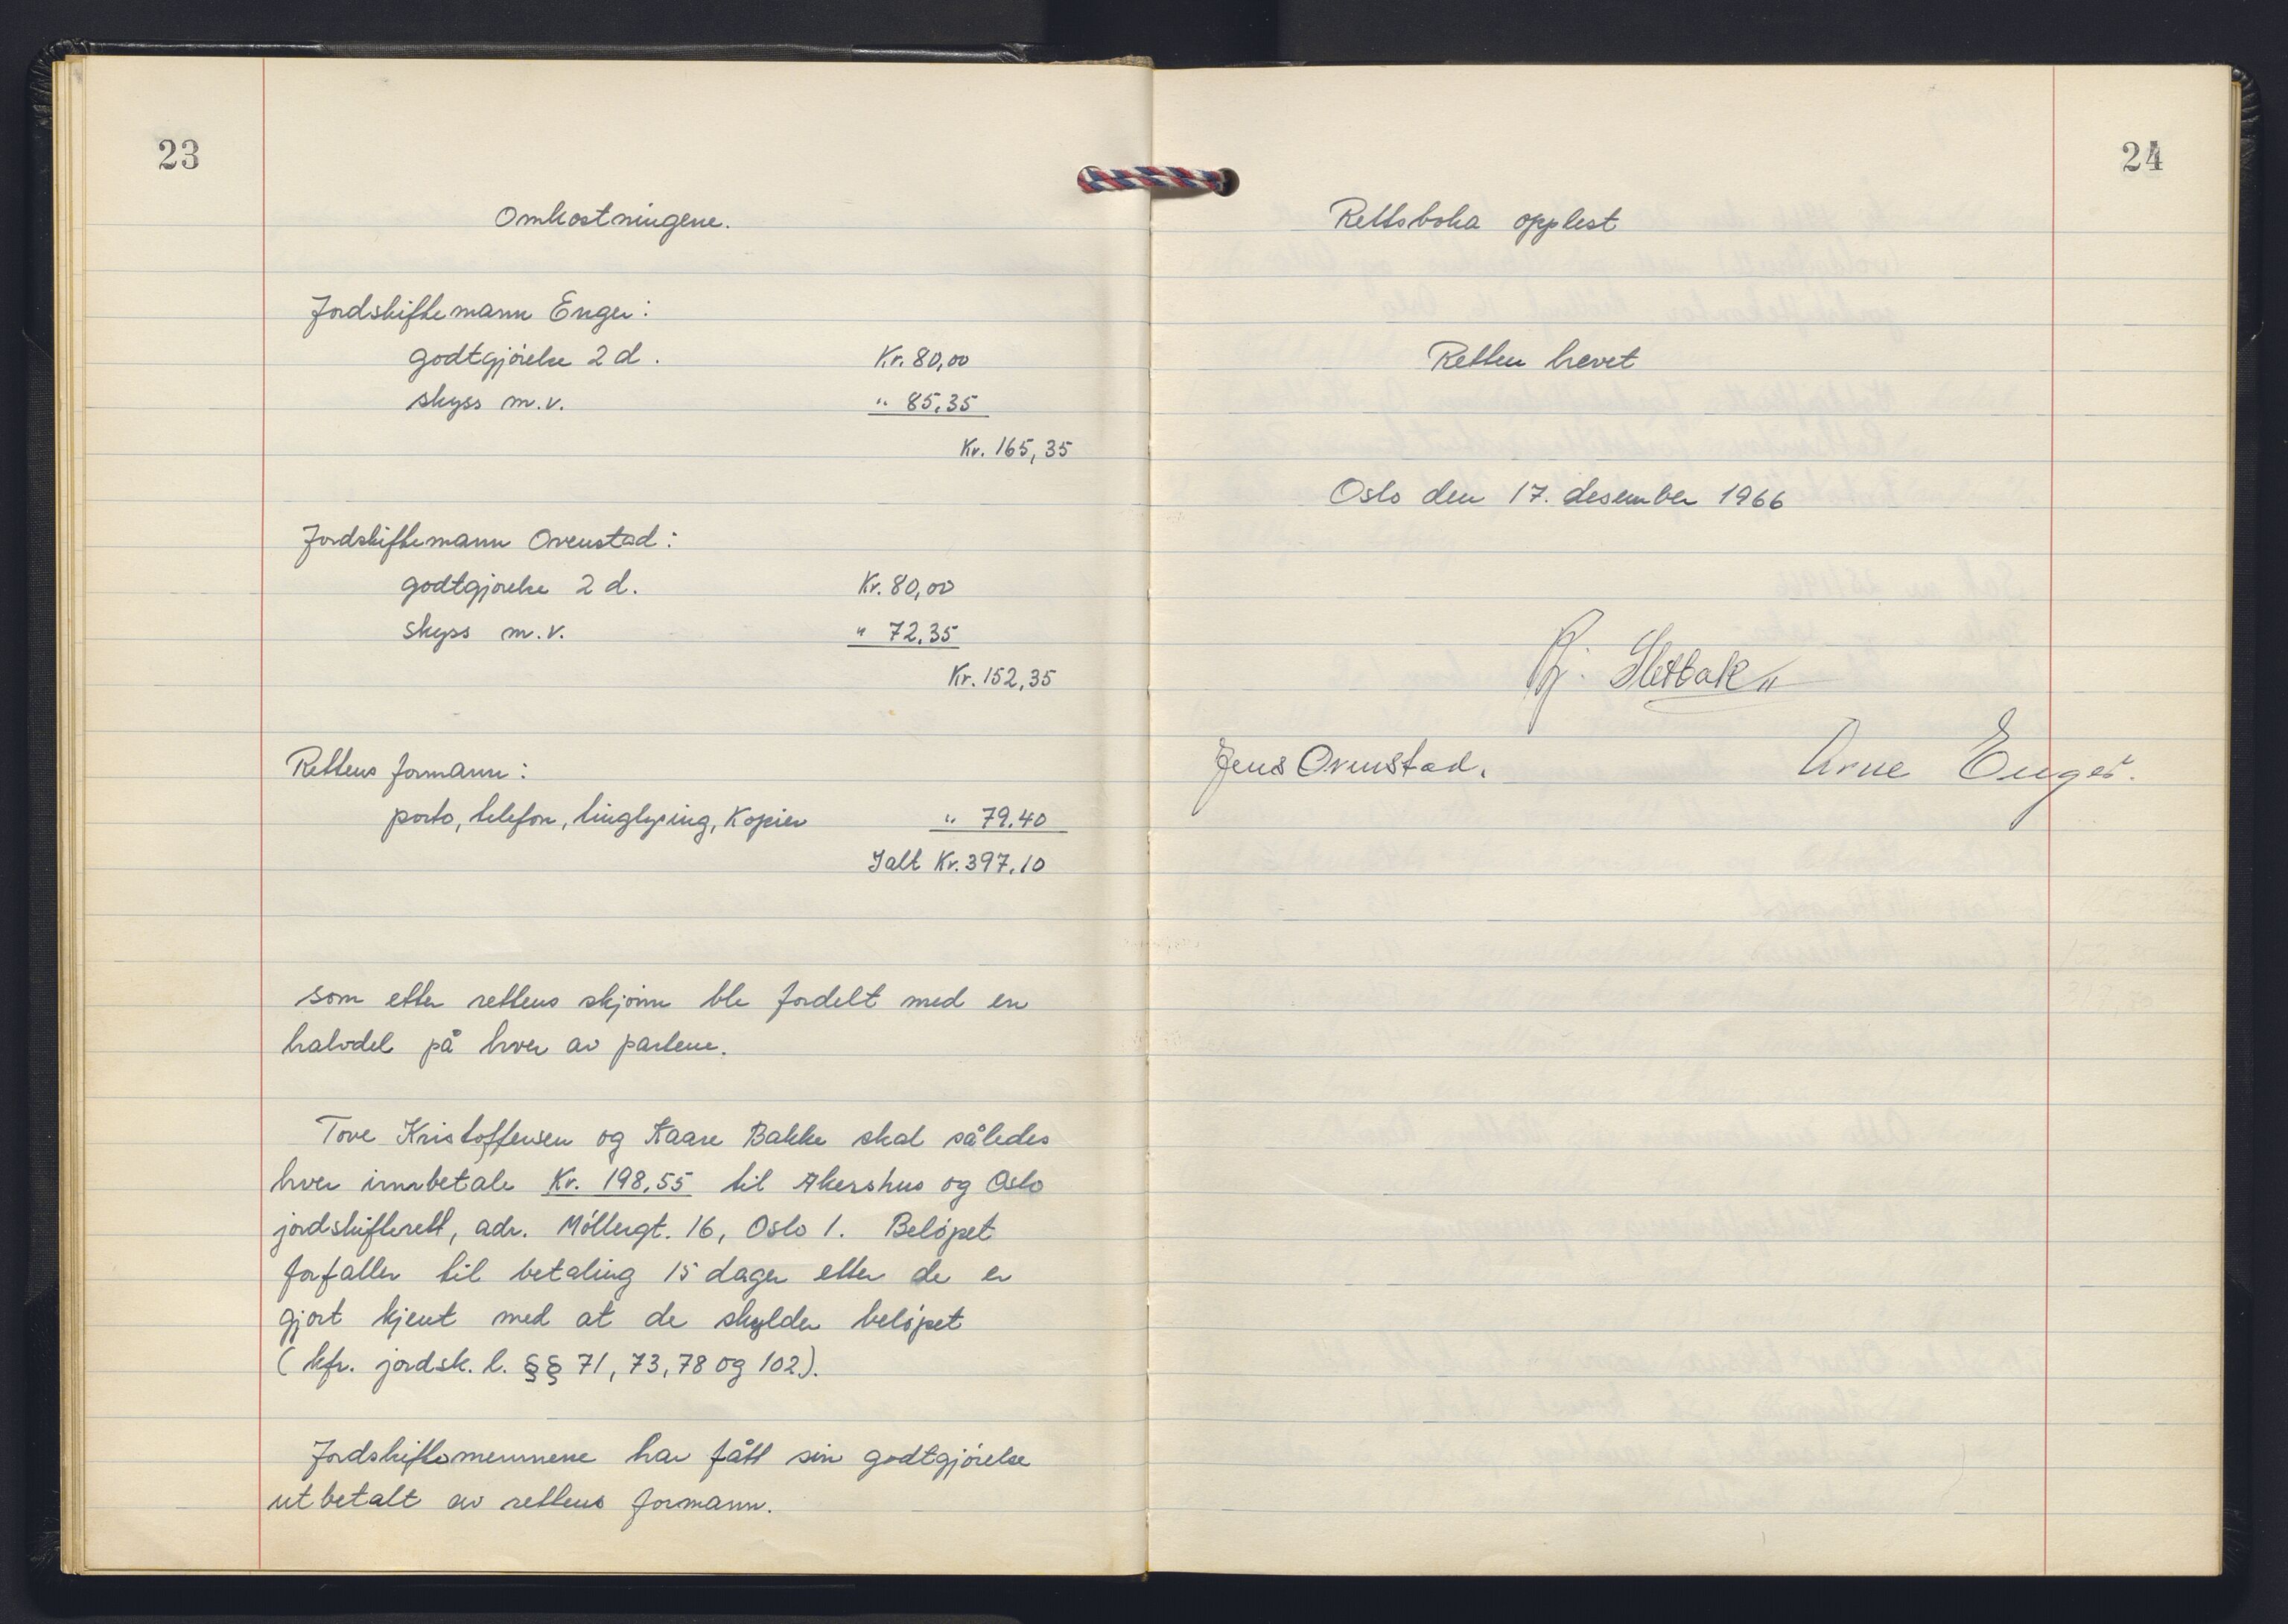 23
Omkostningene.
Jordskiftemann Enger:
godtgjørelse 2 d. Kr. 80,00
skyss m.v. " 85,35
Kr. 165,35
Jordskiftemann Ovenstad:
godtgjørelse 2 d. Kr. 80,00
skyss m.v. " 72,35
Kr. 152,35
Rettens formann:
porto, telefon, tinglysing, kopier " 79,40
Ialt Kr. 397,10
som etter rettens skjønn ble fordelt med en
halvdel på hver av partene.
Tove Kristoffersen og Kaare Bakke skal således
hver innbetale Kr. 198,55 til Akershus og Oslo
jordskifterett, adr. Møllergt. 16, Oslo 1. Beløpet
forfaller til betaling 15 dager etter de er
gjort kjent med at de skylder beløpet
(kfr. jordsk. l. §§ 71, 73, 78 og 102).
Jordskiftemennene har fått sin godtgjørelse
utbetalt av rettens formann.
24
Rettsboka opplest
Retten hevet
Oslo den 17. desember 1966
Sletbakk
Jens Ovenstad. Arne Enger.